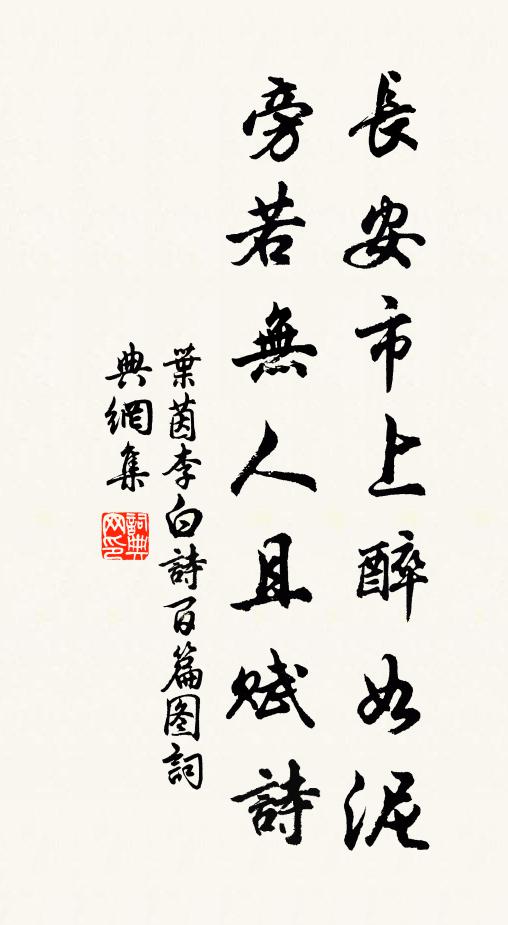 長安市上醉如泥
旁若無人且賦詩
葉茵李白詩百篇图詞
典網集
詞典
网印